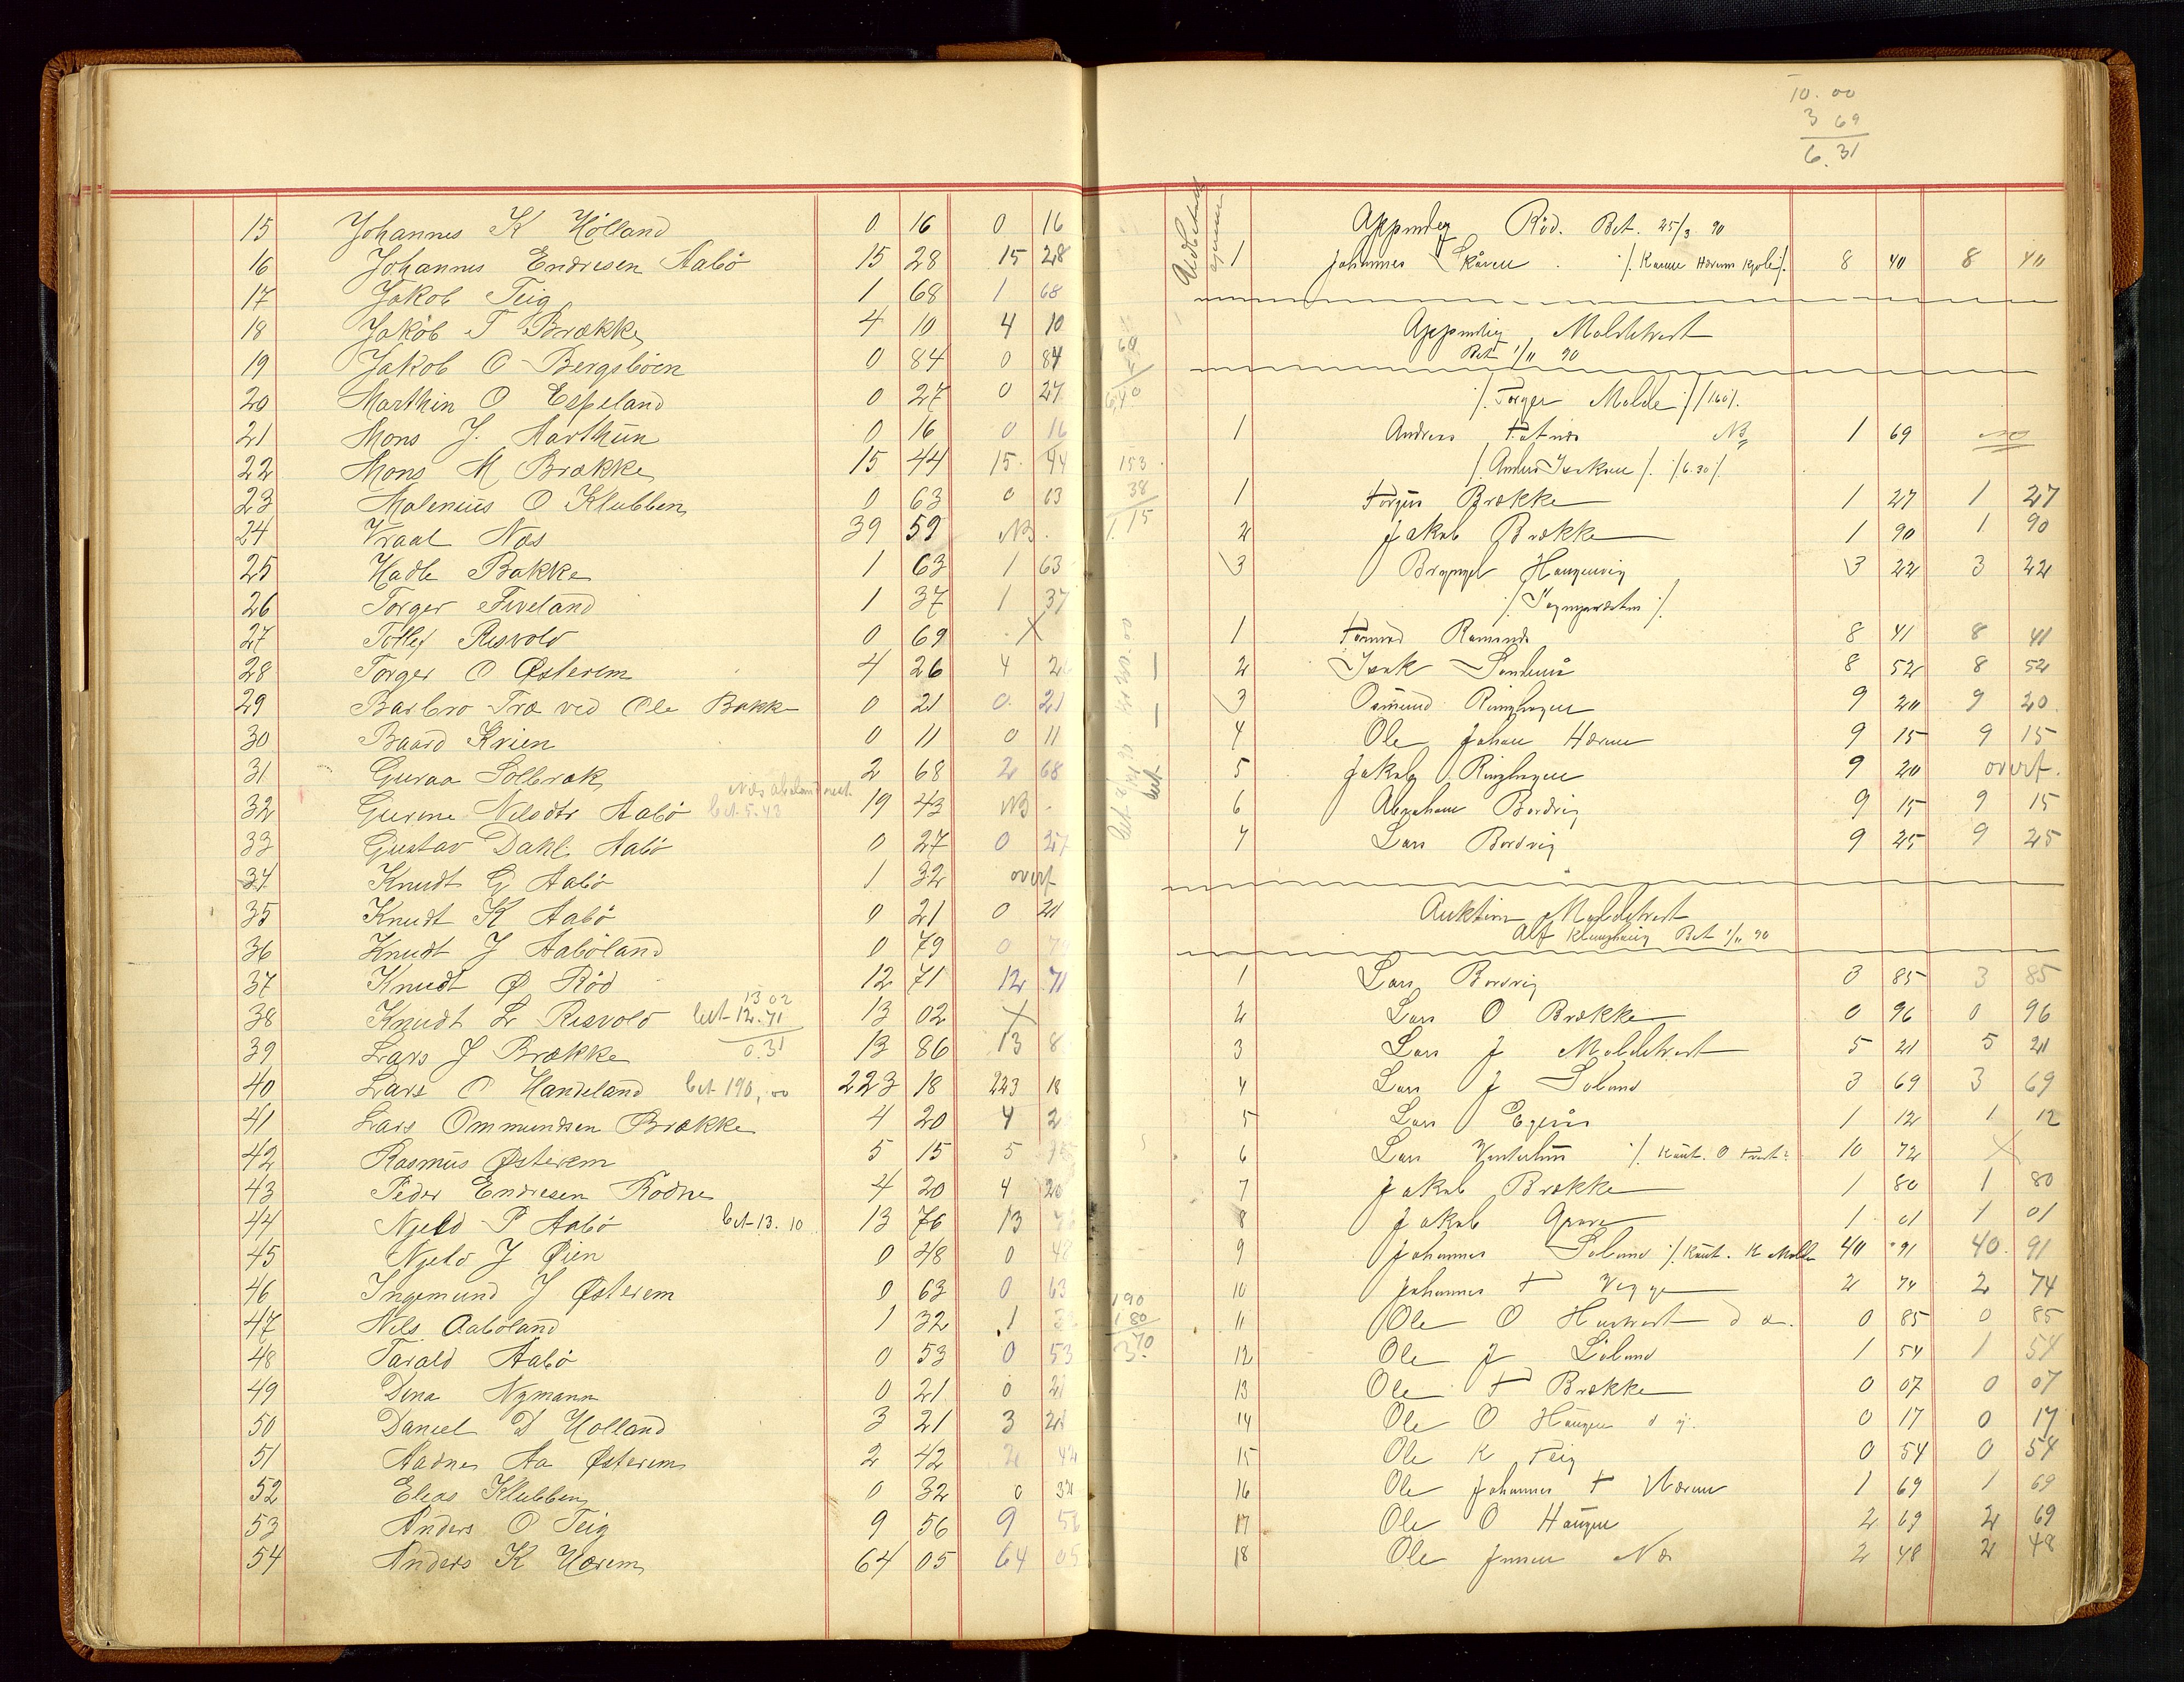 15 Johannes K Hölland 0 16 0 16
16 Johannes Endresen Aabö 15 28 15 28
17 Jakob Teig 1 68 1 68
18 Jakob T Brække 4 10 4 10
19 Jakob O Bergsböen 0 84 0 84
20 Marthin O Espeland 0 27 0 27
21 Mons J. Aarthun 0 16 0 16
22 Mons M Brække 15 44 15 44
23 Malenius O Klubben 0 63 0 63
24 Vraal Næs 39 59 NB.
25 Hadle Bakke 1 63 1 63
26 Torger Fiveland 1 37 1 37
27 Tollef Risvold 0 69 X
28 Torger O Østerem 4 26 4 26
29 Barbro Træ ved Ole Bakk 0 21 0 21
30 Baard Kvien 0 11 0 11
31 Guraa Solbræk 2 68 2 68
32 Gurine Nilsdtr Aabö bet. 5.43 19 43 NB
33 Gustav Dahl Aabö 0 27 0 27
34 Knudt G Aabö 1 32 overf
35 Knudt K Aabö 0 21 0 21
36 Knudt J Aaböland 0 79 0 79
37 Knudt Ø Röd 12 71 12 71
13 02
38 Knudt L Risvold bet 12.71 13 02 X
0.31
39 Lars J Brække 13 86 13 8
40 Lars O Handeland bet 190,00 223 18 223 18
41 Lars Ommundsen Brække 4 20 4 2
42 Rasmus Østerem 5 15 5 15
43 Peder Endresen Rödne 4 20 4 20
44 Njeld P Aabö bet 13.10 13 76 13 76
45 Njeld J Øien 0 48 0 48
46 Ingemund J Østerem 0 63 0 63
47 Nils Aaboland 1 32 1 3
48 Tarald Aabö 0 53 0 53
49 Dina Nymann 0 21 0 21
50 Daniel D Holland 3 21 3 21
51 Aadne Aa Østerem 2 42 2 42
52 Elias Klubben 0 32 0 32
53 Anders O Teig 9 56 9 56
54 Anders K Horem 64 05 64 05
10.00
3 69
6.31
Röd. Bet. 25/3 90
1 Johannes Skåren 8 40 8 40
Moldetvedt
Bet 1/11 90
/. Torger Molde /
1 Andreas NB 1 69
153
38
1.15
1 Torgus Brække 1 27 1 27
2 Jakob Brække 1 90 1 90
3 3 22 3 22
1 8 41 8 41
2 Isak 8 52 8 52
3 Osmund Ringhagen 9 20 9 20
4 Ole Johan 9 15 9 15
5 Jakob Ringhagen 9 20 overf.
6 Abraham Bordvig 9 15 9 15
7 Lars Bordvig 9 25 9 25
Auktion Moldetvedt
Alf Bet 1/11 90
1 Lars Bordvig 3 85 3 85
2 Lars O Brække 0 96 0 96
3 Lars J Moldetvedt 5 21 5 21
4 Lars J Soland 3 69 3 69
5 Lars 1 12 1 12
6 Lars 10 72 X
7 Jakob Brække 1 80 1 80
8 Jakob 1 01 1 01
9 Johannes Soland 40 91 40 91
190
180
3.70
10 Johannes T 2 74 2 74
11 Ole O 0 85 0 85
12 Ole J Soland 1 54 1 54
13 Ole T Brække 0 07 0 07
14 Ole O Haugen 0 17 0 17
15 Ole K Teig 0 54 0 54
16 Ole Johannes T 1 69 1 69
17 Ole O Haugen 2 69 2 69
18 Ole Jensen Næs 2 48 2 48